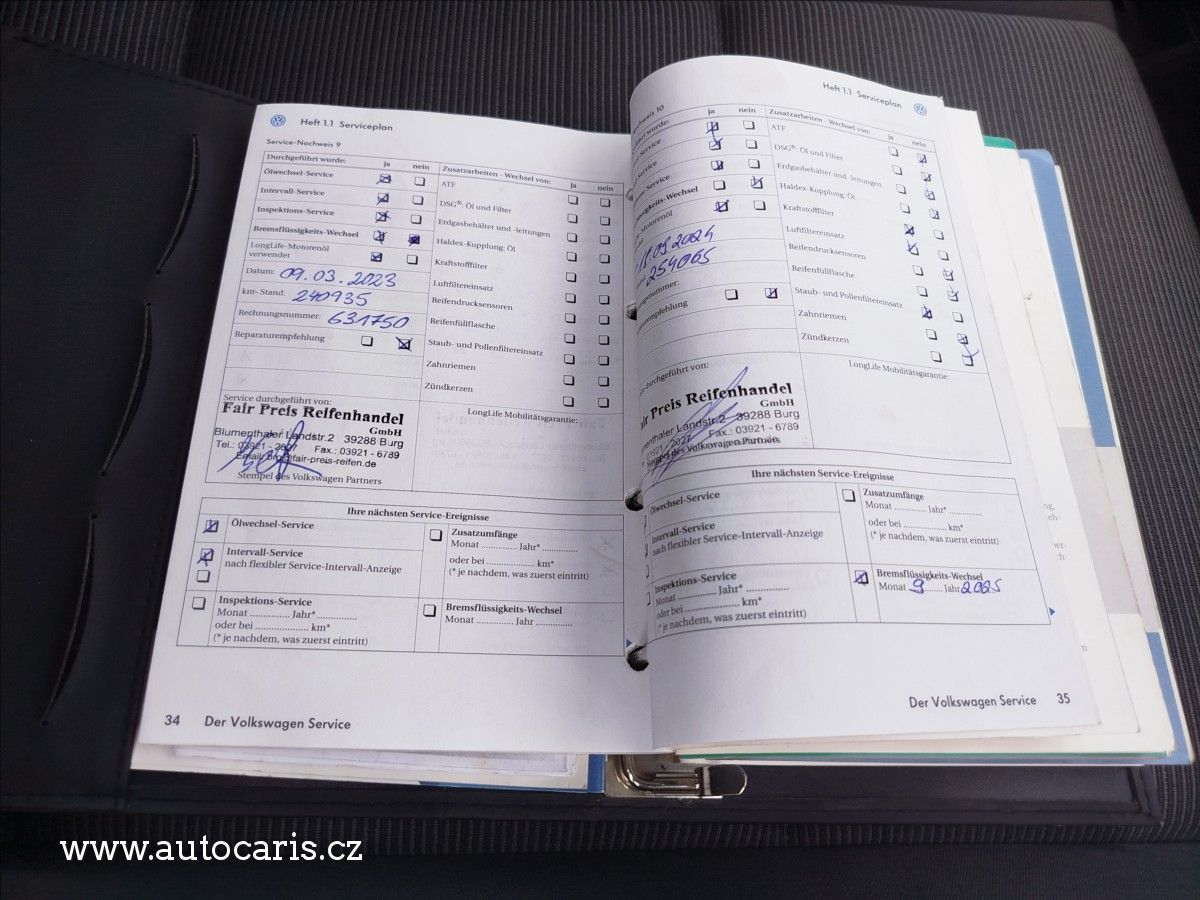 Heft 1.1 Serviceplan
Service-Nachweis 9
Durchgeführt wurde: ja nein
Ölwechsel-Service
Intervall-Service
Inspektions-Service
Bremsflüssigkeits-Wechsel
LongLife-Motorenöl
verwendet
Datum: 09.03.2023
km-Stand: 240935
Rechnungsnummer: 631750
Reparaturempfehlung
Zusatzarbeiten - Wechsel von: ja nein
ATF
DSG®: Öl und Filter
Erdgasbehälter und -leitungen
Haldex-Kupplung: Öl
Kraftstofffilter
Luftfiltereinsatz
Reifendrucksensoren
Reifenfüllflasche
Staub- und Pollenfiltereinsatz
Zahnriemen
Zündkerzen
Service durchgeführt von:
Fair Preis Reifenhandel
GmbH
Blumenthaler Landstr.2 39288 Burg
Tel.: 03921 - Fax.: 03921 - 6789
Email: brg@fair-preis-reifen.de
Stempel des Volkswagen Partners
LongLife Mobilitätsgarantie:
Ihre nächsten Service-Ereignisse
Ölwechsel-Service
Intervall-Service
nach flexibler Service-Intervall-Anzeige
Inspektions-Service
Monat .............. Jahr* .............
oder bei ................... km*
(* je nachdem, was zuerst eintritt)
Zusatzumfänge
Monat ............. Jahr* .............
oder bei ................ km*
(* je nachdem, was zuerst eintritt)
Bremsflüssigkeits-Wechsel
Monat .............. Jahr .............
34 Der Volkswagen Service
Heft 1.1 Serviceplan
10
wurde: ja nein
Service
Service
Service
Wechsel
Motorenöl
.09.2024
254065
nummer:
Zusatzarbeiten - Wechsel von: ja nein
ATF
DSG®: Öl und Filter
Erdgasbehälter und -leitungen
Haldex-Kupplung: Öl
Kraftstofffilter
Luftfiltereinsatz
Reifendrucksensoren
Reifenfüllflasche
Staub- und Pollenfiltereinsatz
Zahnriemen
Zündkerzen
durchgeführt von:
Preis Reifenhandel
GmbH
Landstr.2 39288 Burg
Fax.: 03921 - 6789
Stempel des Volkswagen Partners
LongLife Mobilitätsgarantie:
Ihre nächsten Service-Ereignisse
Ölwechsel-Service
Intervall-Service
nach flexibler Service-Intervall-Anzeige
Inspektions-Service
Monat .............. Jahr* .............
oder bei ................... km*
(* je nachdem, was zuerst eintritt)
Zusatzumfänge
Monat ............. Jahr* .............
oder bei ................ km*
(* je nachdem, was zuerst eintritt)
Bremsflüssigkeits-Wechsel
Monat 9 Jahr
Der Volkswagen Service 35
www.autocaris.cz